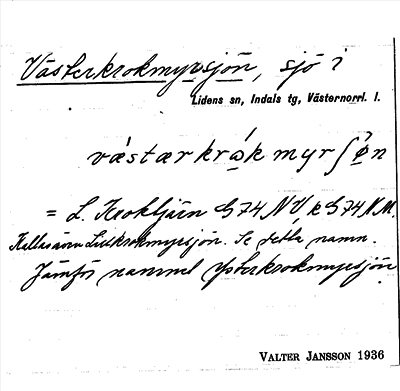 Västerkrokmyrsjön, sjö i
Lidens sn, Indals tg, Västernorrl. l.
vǽstærkrɔ́kmyrʃø̀n
= L. Kroktjärn G74 NV k G74 N.M.
Kallas även Lillkrokmyrsjön. Se detta namn.
Jämför namnet Ysterkrokmyrsjön
VALTER JANSSON 1936